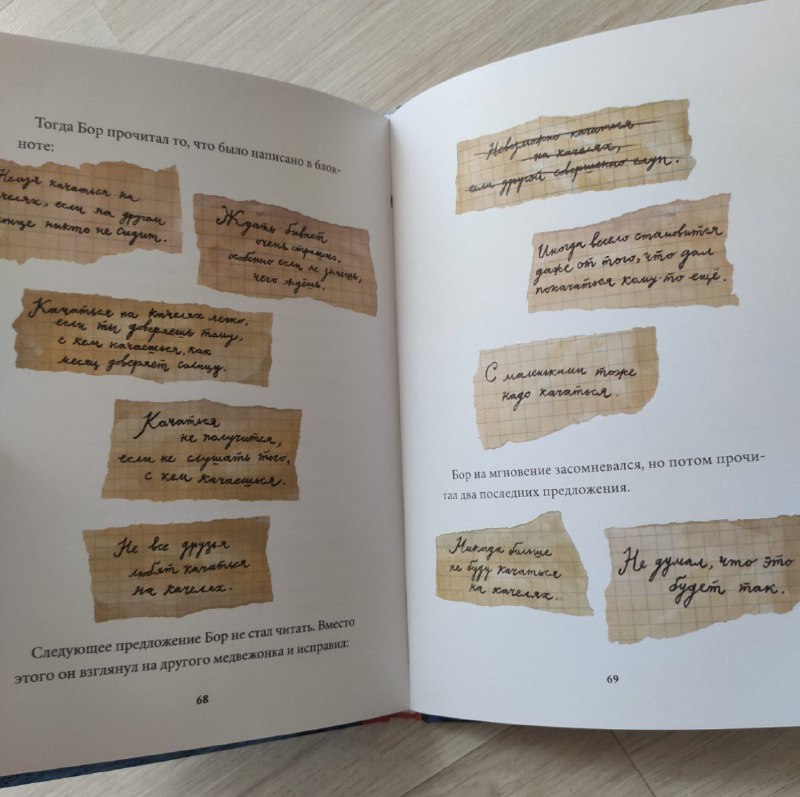 Тогда Бор прочитал то, что было написано в блок-
ноте:
Нельзя качаться на
качелях, если на другом
конце никто не сидит.
Ждать бывает
очень страшно,
особенно если не знаешь,
чего ждёшь.
Качаться на качелях легко,
если ты доверяешь тому,
с кем качаешься, как
месяц доверяет солнцу.
Качаться
не получится,
если не слушать того,
с кем качаешься.
Не все друзья
любят качаться
на качелях.
Следующее предложение Бор не стал читать. Вместо
этого он взглянул на другого медвежонка и исправил:
68
Невозможно качаться
на качелях,
если другой совершенно глуп.
Иногда весело становится
даже от того, что дал
покачаться кому-то ещё.
С маленькими тоже
надо качаться.
Бор на мгновение засомневался, но потом прочи-
тал два последних предложения.
Никогда больше
не буду качаться
на качелях.
Не думал, что это
будет так.
69